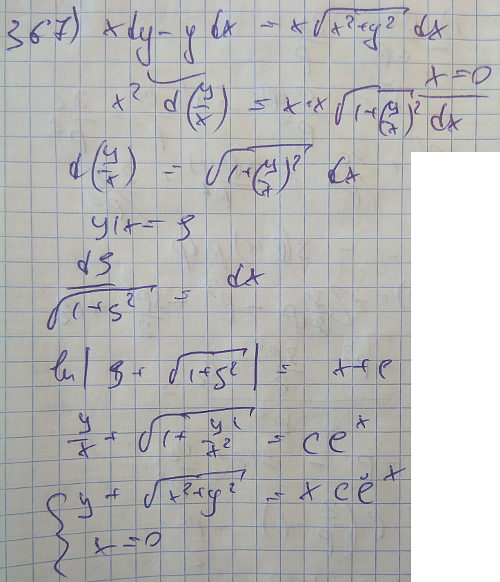 367) xdy - y dx = x√(x²+y²) dx
x² d(y/x) = x·x√(1+(y/x)²) dx x=0
d(y/x) = √(1+(y/x)²) dx
y/x = S
dS/√(1+S²) = dx
ln|S + √(1+S²)| = x+c
y/x + √(1+y²/x²) = ce^x
{ y + √(x²+y²) = x c e^x
x = 0